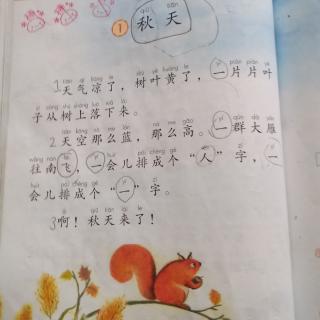 ① 秋天
qiū tiān
1 天气凉了，树叶黄了，一片片叶
子从树上落下来。
2 天空那么蓝，那么高。一群大雁
往南飞，一会儿排成个“人”字，一
会儿排成个“一”字。
3 啊！秋天来了！